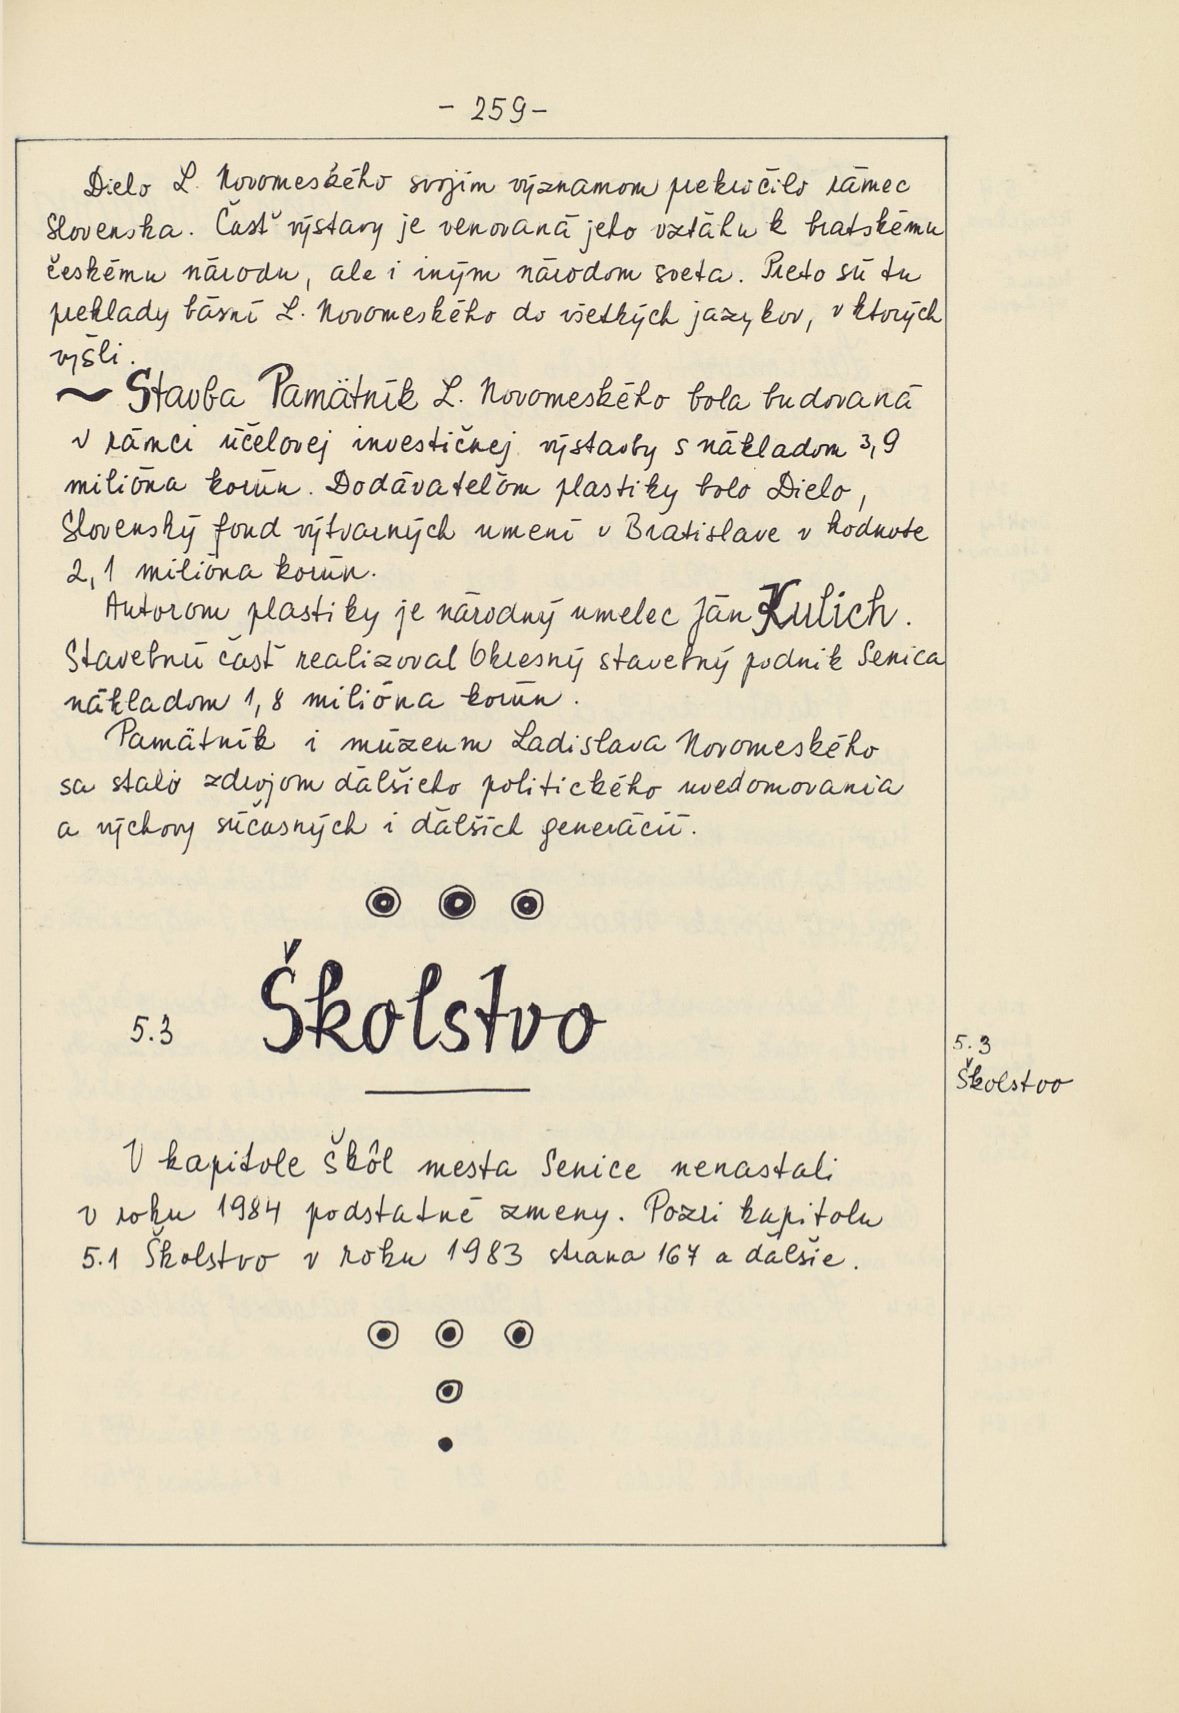 - 259 -
Dielo L. Novomeského svojím významom prekročilo rámec
Slovenska. Časť výstavy je venovaná jeho vzťahu k bratskému
českému národu, ale i iným národom sveta. Preto sú tu
preklady básní L. Novomeského do všetkých jazykov, v ktorých
vyšli.
~ Stavba Pamätník L. Novomeského bola budovaná
v rámci účelovej investičnej výstavby s nákladom 3,9
milióna korún. Dodávateľom plastiky bolo Dielo,
Slovenský fond výtvarných umení v Bratislave v hodnote
2,1 milióna korún.
Autorom plastiky je národný umelec Ján Kulich.
Stavebnú časť realizoval Okresný stavebný podnik Senica
nákladom 1,8 milióna korún.
Pamätník i múzeum Ladislava Novomeského
sa stalo zdrojom ďalšieho politického uvedomovania
a výchovy súčasných i ďalších generácií.
5.3 Školstvo
5.3
Školstvo
V kapitole škôl mesta Senice nenastali
v roku 1984 podstatné zmeny. Pozri kapitolu
5.1 Školstvo v roku 1983 strana 167 a ďalšie.